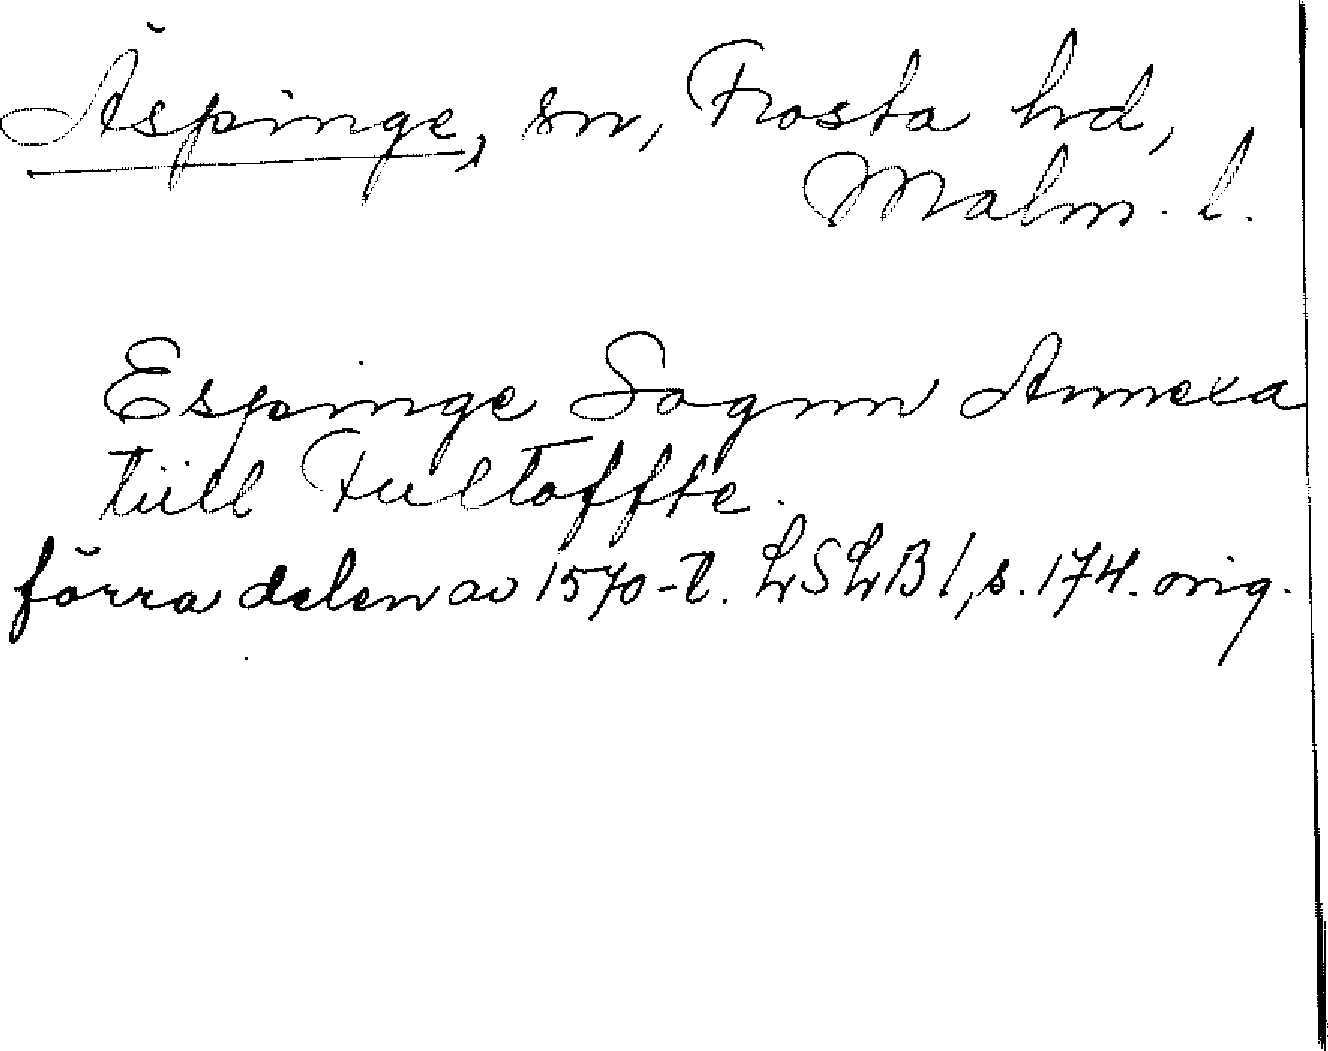 Äspinge, sn, Frosta hd,
Malm. l.
Espinge Sognn Annexa
tiill Fultoffte.
förra delen av 1570-t. LSLB 1, s. 174. orig.